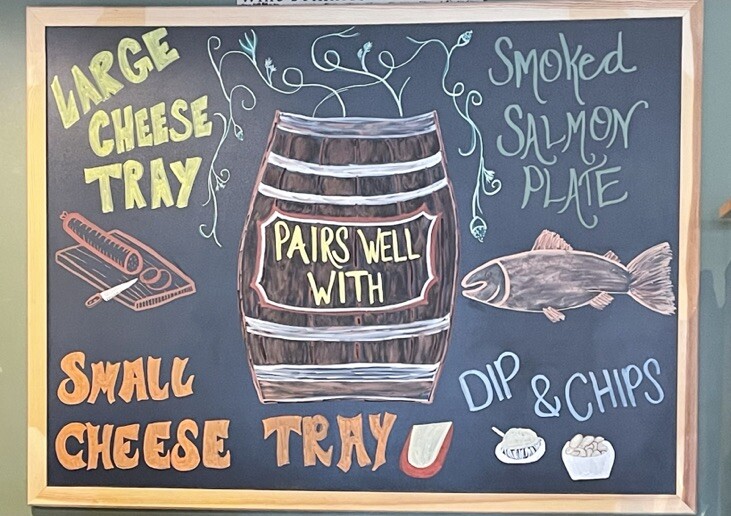 LARGE
CHEESE
TRAY
Smoked
SALMON
PLATE
PAIRS WELL
WITH
SMALL
CHEESE TRAY
DIP & CHIPS